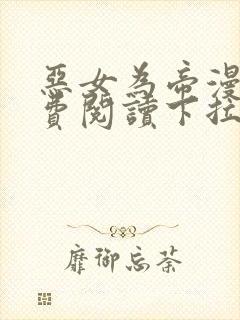 惡女為帝漫
費閱讀卡拉
靡御忘荼